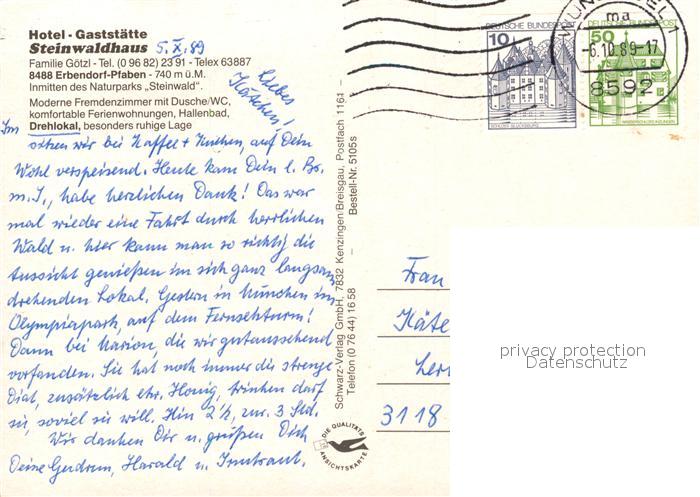 Hotel - Gaststätte
Steinwaldhaus 5.X.89
Familie Götzl - Tel. (0 96 82) 23 91 - Telex 63887
8488 Erbendorf-Pfaben - 740 m ü.M.
Inmitten des Naturparks „Steinwald".
Moderne Fremdenzimmer mit Dusche/WC,
komfortable Ferienwohnungen, Hallenbad,
Drehlokal, besonders ruhige Lage
Liebes
Kätchen!
Im
sitzen wir bei Kaffee + Kuchen, auf Dein
Wohl verspeisend. Heute kam Dein l. Br.
m. I., habe herzlichen Dank! Das war
mal wieder eine Fahrt durch herrlichen
Wald u. hier kann man so richtig die
Aussicht genießen im sich ganz langsam
drehenden Lokal. Gestern in München im
Olympiapark, auf dem Fernsehturm!
Dann bei Marion, die wir gutaussehend
vorfanden. Sie hat noch immer die strenge
Diät, zusätzlich etw. Honig, trinken darf
sie, soviel sie will. Hin 2½, zur. 3 Std.
Wir danken Dir u. grüßen Dich
Deine Gudrun, Harald u. Irmtraut.
Schwarz-Verlag GmbH, 7832 Kenzingen/Breisgau, Postfach 1164 -
Telefon (0 76 44) 16 58 - Bestell-Nr. 5105s
DIE QUALITÄTS
ANSICHTSKARTE
DEUTSCHE BUNDESPOST
10
SCHLOSS GLÜCKSBURG
DEUTSCHE BUNDESPOST
50
WASSERSCHLOSS INZLINGEN
1
ma
-6.10.89-17
8592
Frau
Käte
3118
privacy protection
Datenschutz